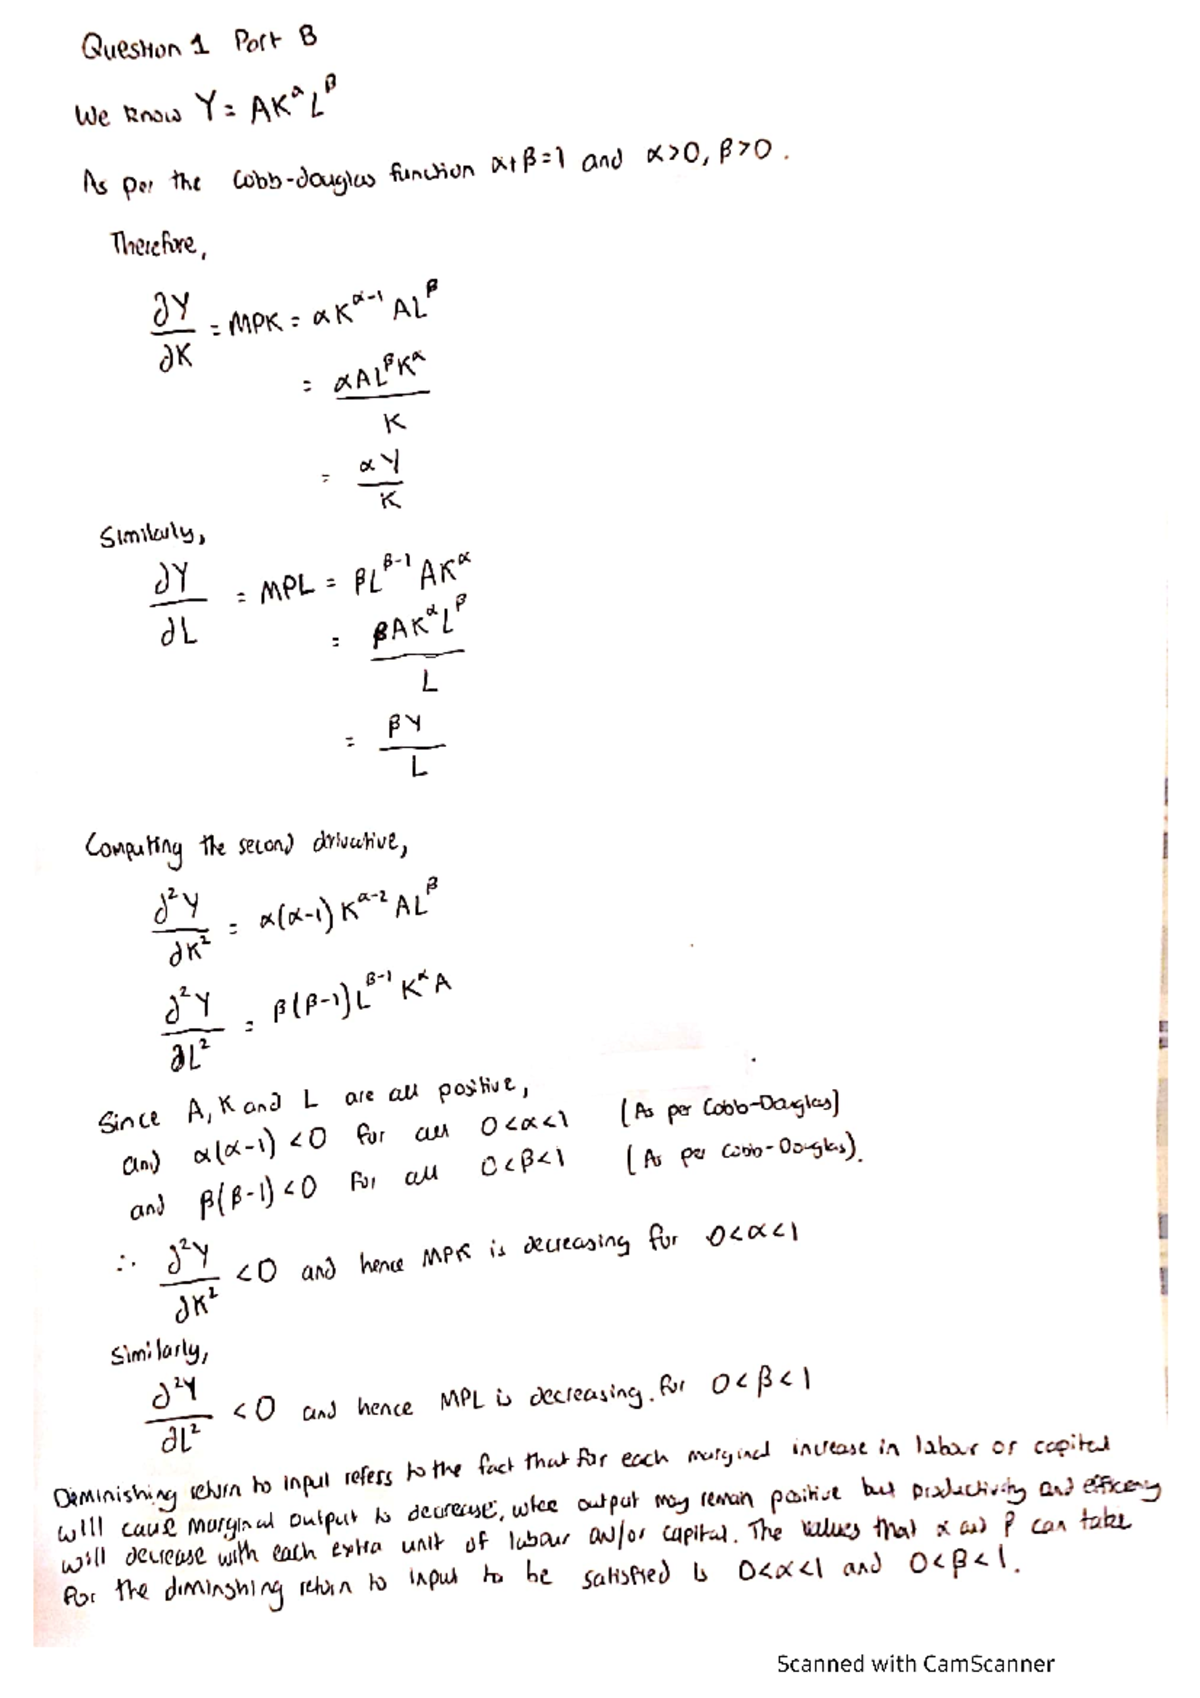 Question 1 Part B
We know Y = AK^α L^β
As per the Cobb-douglas function α+β=1 and α>0, β>0.
Therefore,
∂Y/∂K = MPK = αK^(α-1) AL^β
= αAL^βK^α / K
= αY / K
Similarly,
∂Y/∂L = MPL = βL^(β-1) AK^α
= βAK^αL^β / L
= βY / L
Computing the second drivative,
∂²Y/∂K² = α(α-1) K^(α-2) AL^β
∂²Y/∂L² = β(β-1) L^(β-1) K^α A
Since A, K and L are all positive,
and α(α-1) <0 for all 0<α<1 (As per Cobb-Douglas)
and β(β-1) <0 for all 0<β<1 (As per Cobb-Douglas).
∴ ∂²Y/∂K² <0 and hence MPK is decreasing for 0<α<1
Similarly,
∂²Y/∂L² <0 and hence MPL is decreasing. for 0<β<1
Diminishing return to input refers to the fact that for each marginal increase in labour or capital
will cause marginal output to decrease, output may remain positive but productivity and efficency
will decrease with each extra unit of labour and/or capital. The values that α and β can take
for the diminshing return to input to be satisfied is 0<α<1 and 0<β<1.
Scanned with CamScanner